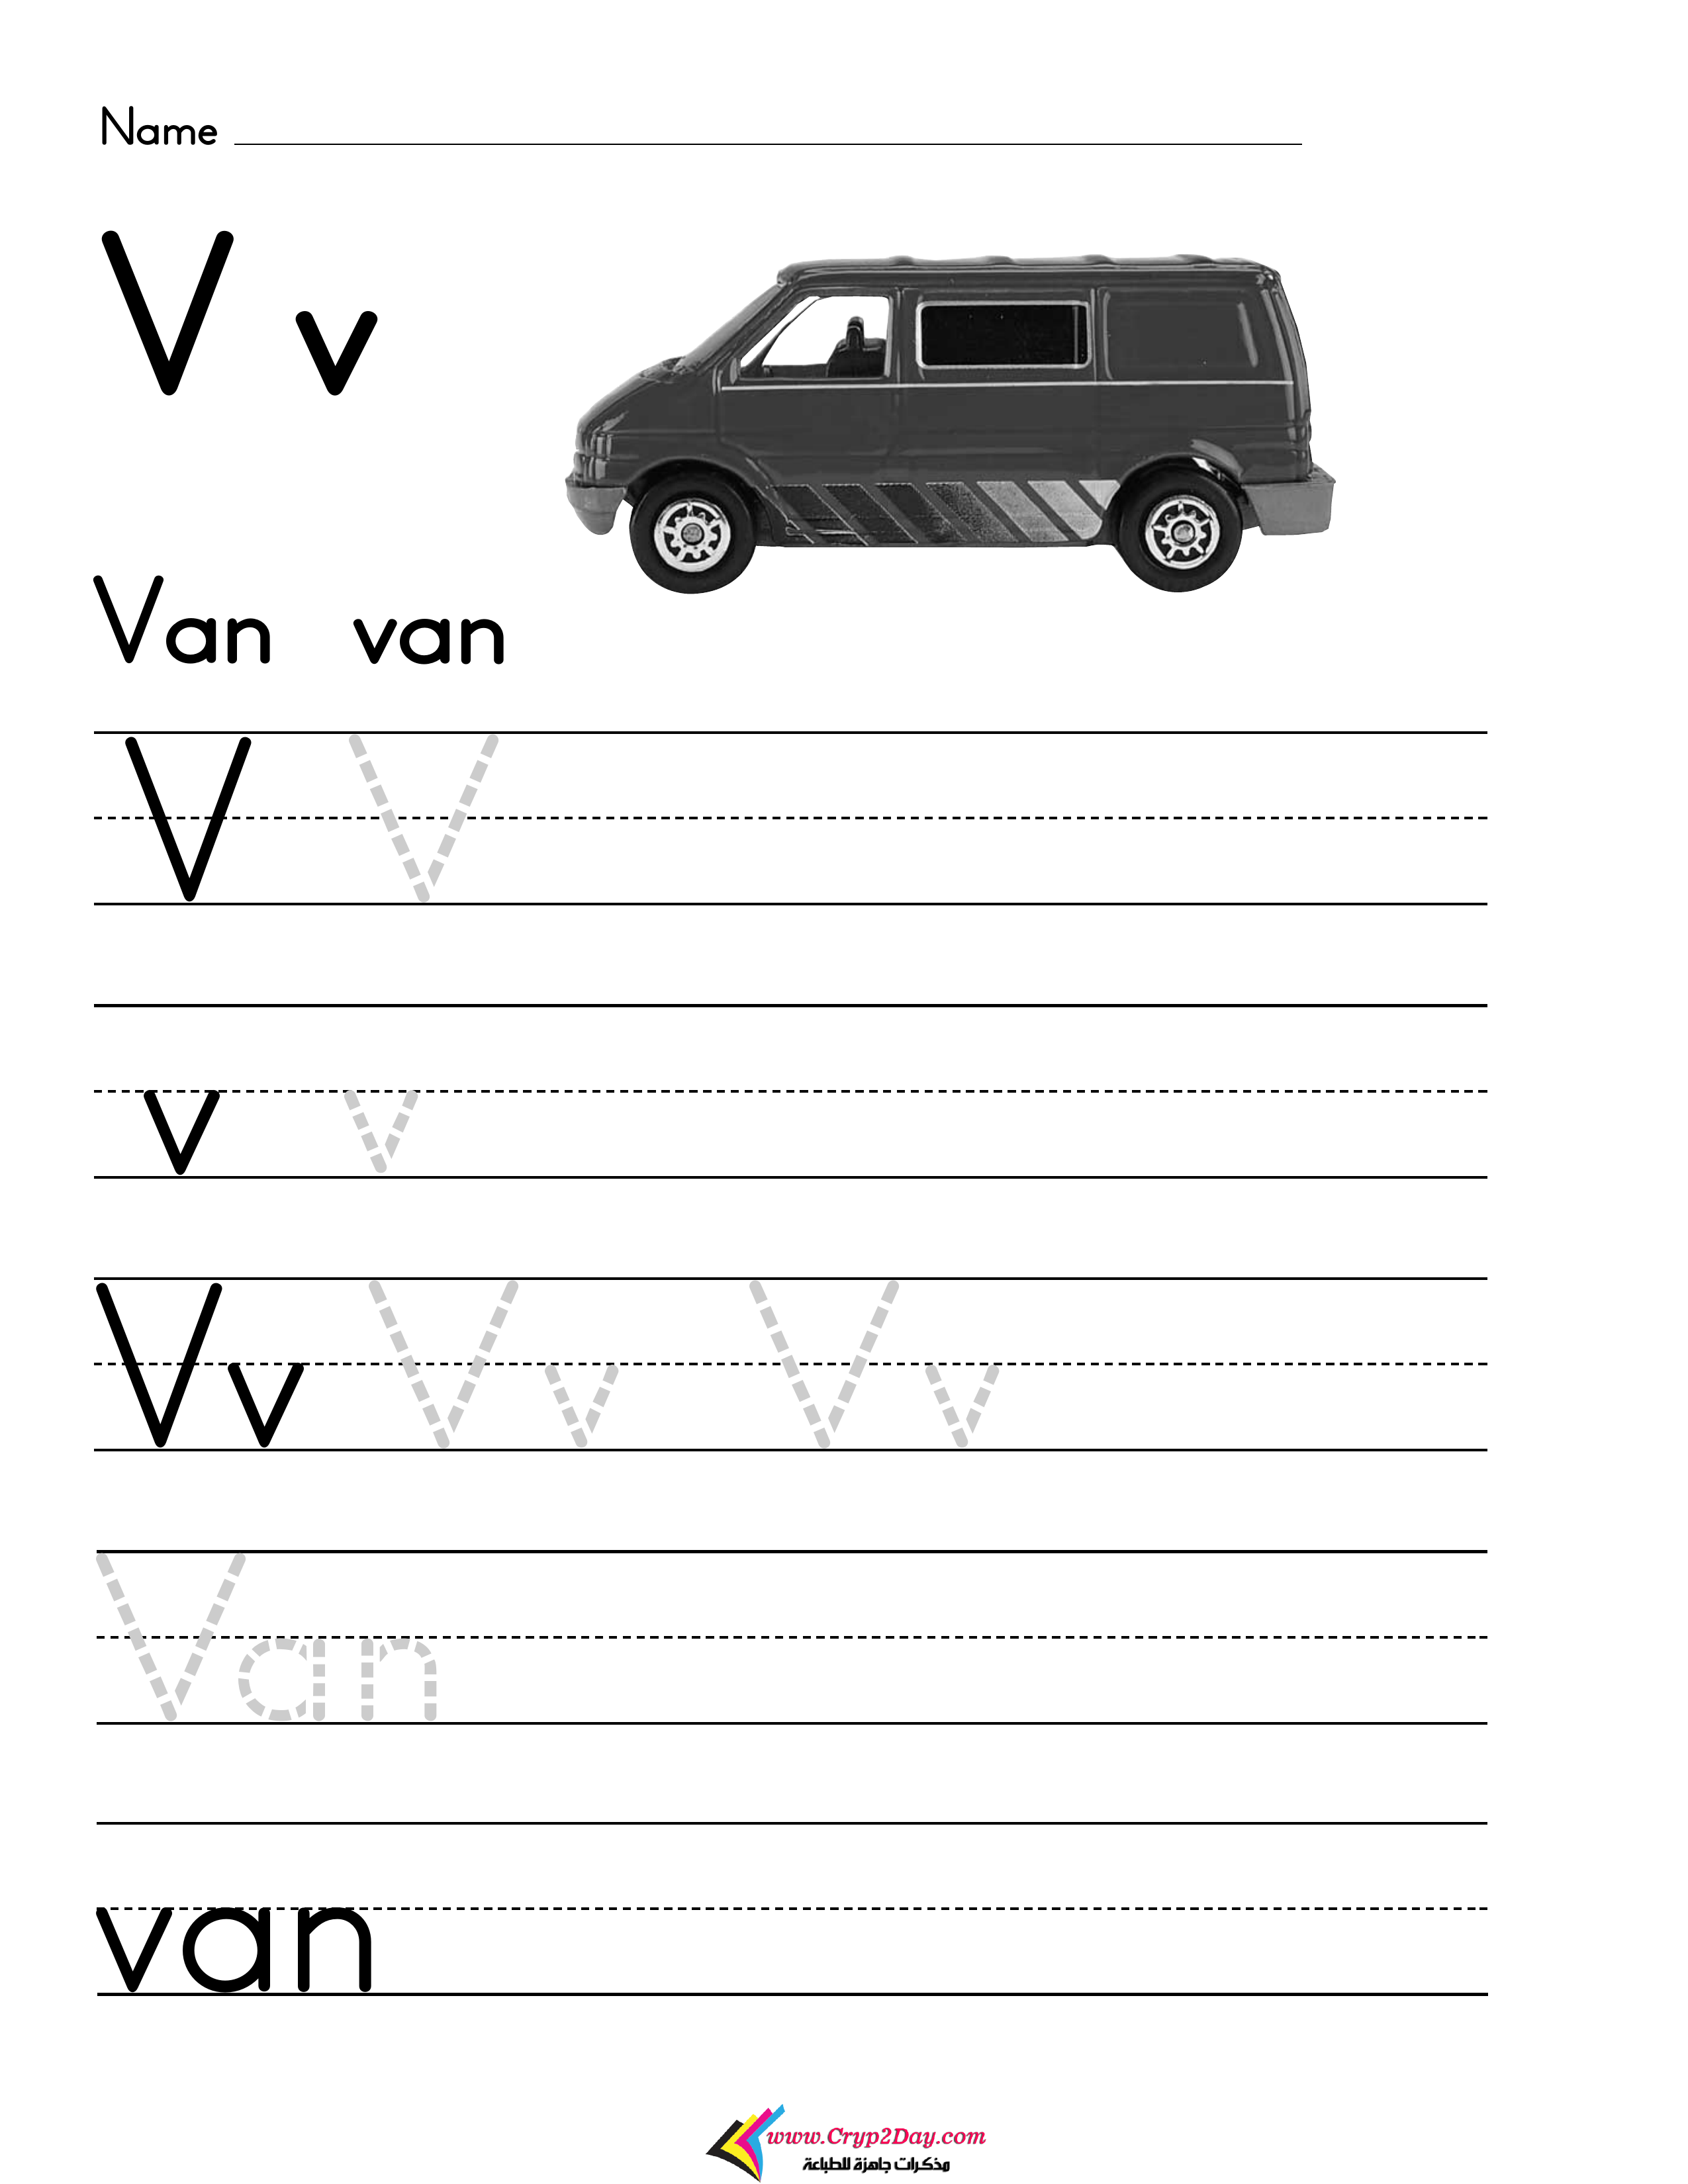 Name
V v
Van van
V V
v v
Vv Vv Vv
Van
van
www.Cryp2Day.com
مذكرات جاهزة للطباعة